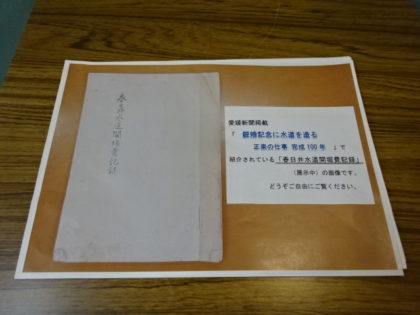 春日井水道開掘費記録
愛媛新聞掲載
「銀婚記念に水道を造る
正泉の仕事 完成100年」で
紹介されている「春日井水道開堀費記録」
(展示中)の画像です。
どうぞご自由にご覧ください。